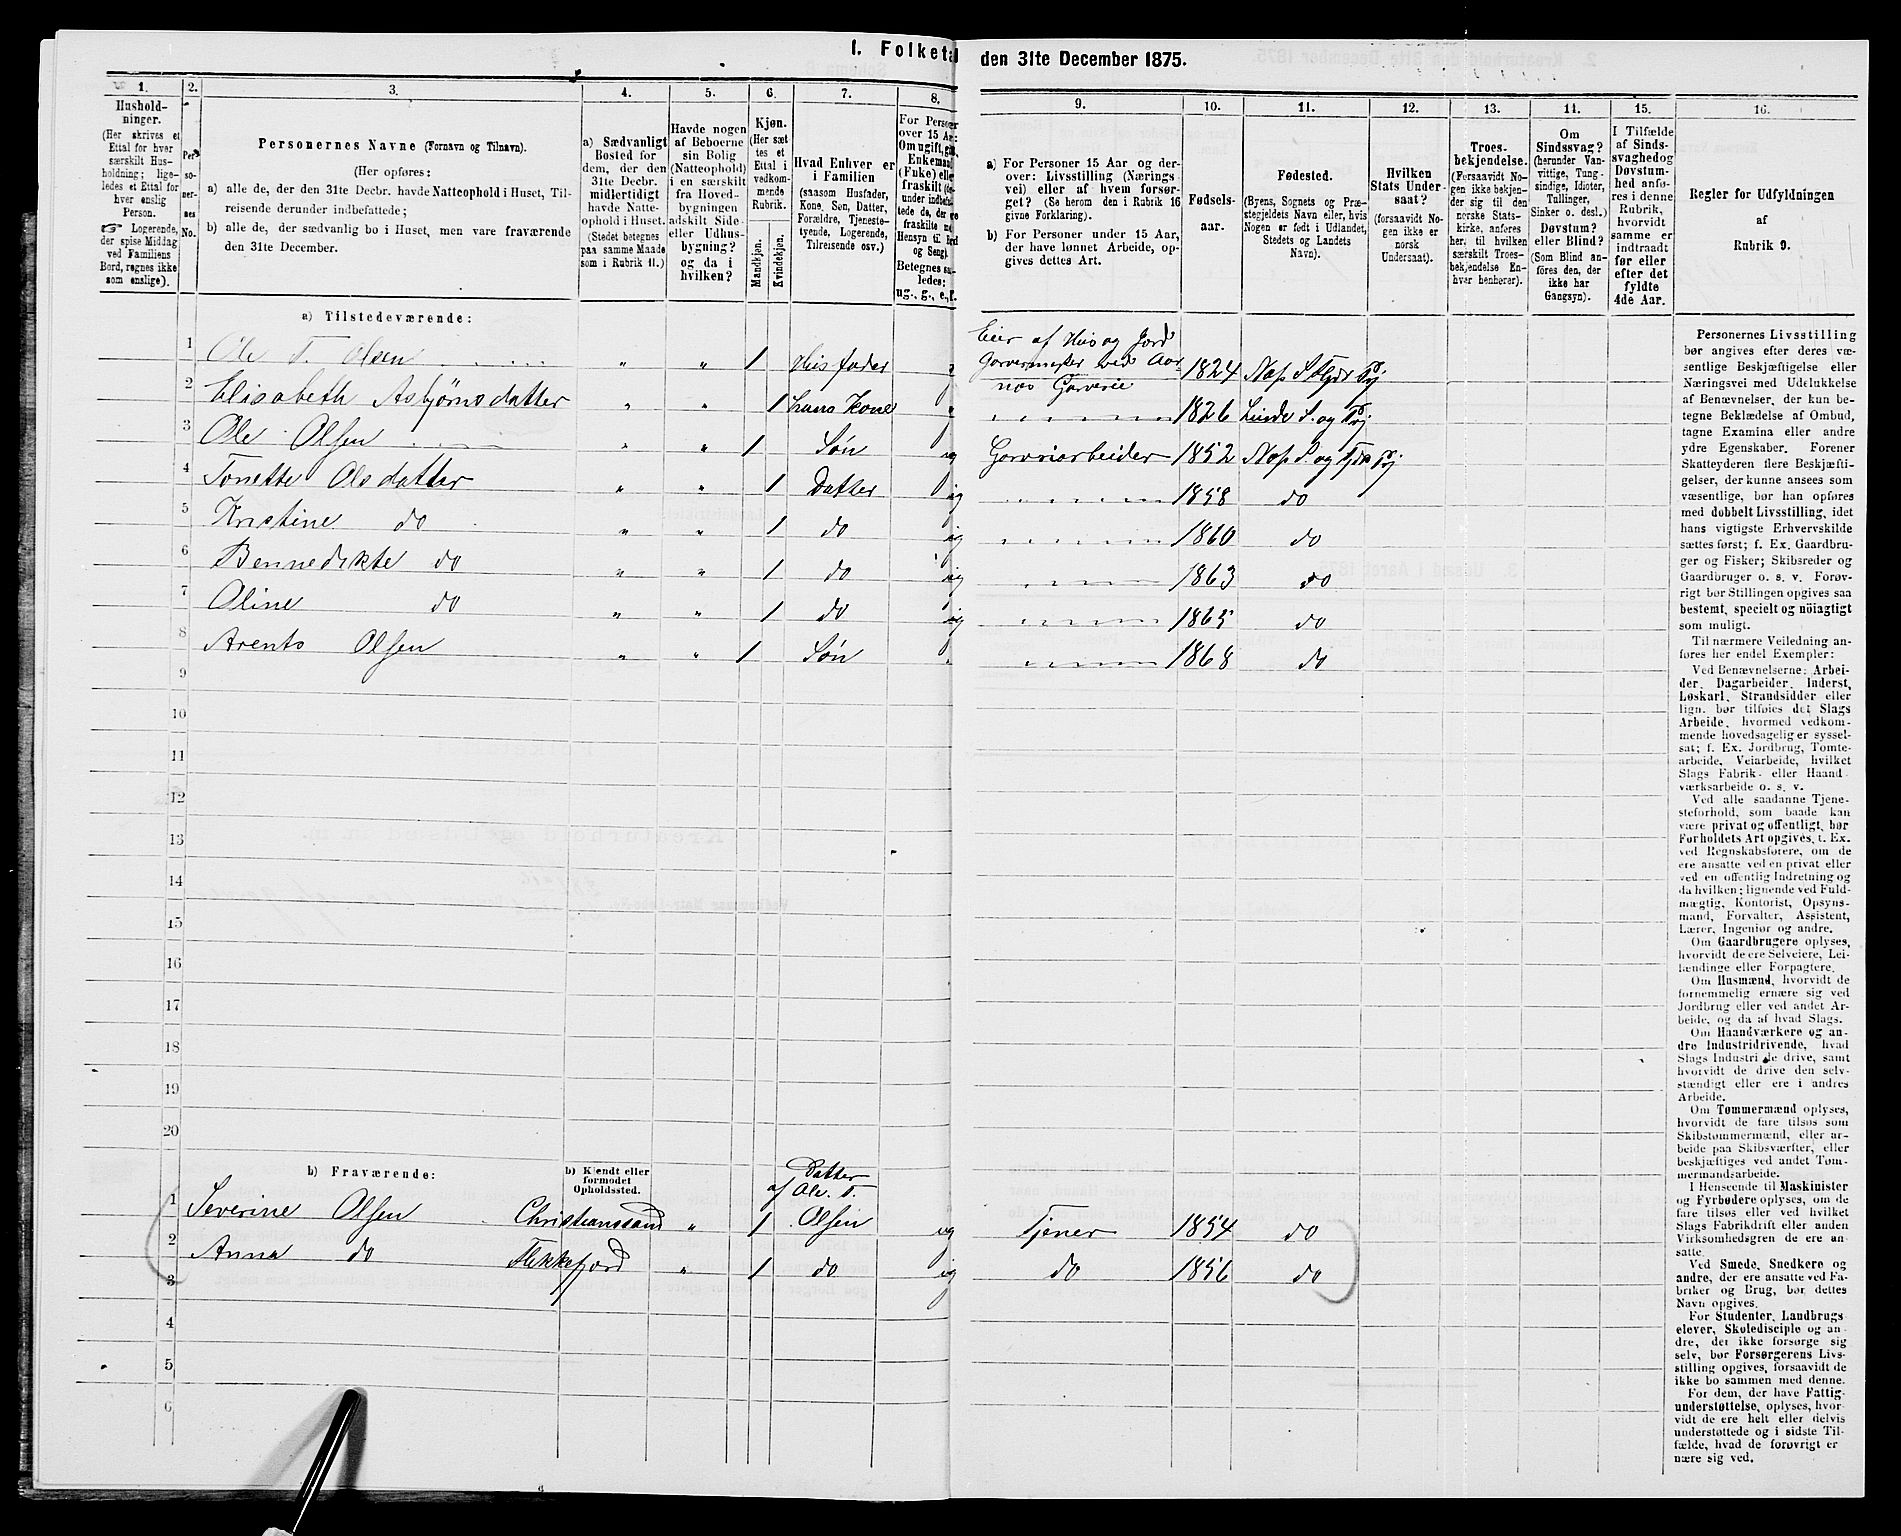 I. Folketal
den 31te December 1875.
1.
Hushold-
ninger.
(Her skrives et
Ettal for hver
særskilt Hus-
holdning; lige-
ledes et Ettal for
hver enslig
Person.
☞ Logerende,
der spise Middag
ved Familiens
Bord, regnes ikke
som enslige).
2.
Per-
so-
ner-
nes
No.
3.
Personernes Navne (Fornavn og Tilnavn).
(Her opføres:
a) alle de, der den 31te Decbr. havde Natteophold i Huset, Til-
reisende derunder indbefattede;
b) alle de, der sædvanlig bo i Huset, men vare fraværende
den 31te December.
4.
a) Sædvanligt
Bosted for
dem, der den
31te Decbr.
midlertidigt
havde Natte-
ophold i Huset.
(Stedet betegnes
paa samme Maade
som i Rubrik 11.)
5.
Havde nogen
af Beboerne
sin Bolig
(Natteophold)
i en særskilt
fra Hoved-
bygningen
adskilt Side-
eller Udhus-
bygning?
og da i
hvilken?
6.
Kjøn.
(Her sæt-
tes et
Ettal i
vedkom-
mende
Rubrik.
Mandkjøn.
Kvindekjøn.
7.
Hvad Enhver er
i Familien
(saasom Husfader,
Kone, Søn, Datter,
Forældre, Tjeneste-
tyende, Logerende,
Tilreisende osv.)
8.
For Personer
over 15 Aar:
Om ugift, gift,
Enkemand
(Enke) eller
fraskilt
Betegnes saa-
ledes:
ug., g., e., f.
9.
a) For Personer 15 Aar og der-
over: Livsstilling (Nærings-
vei) eller af hvem forsør-
get? (Se herom den i Rubrik 16
givne Forklaring).
b) For Personer under 15 Aar,
der have lønnet Arbeide, op-
gives dettes Art.
10.
Fødsels-
aar.
11.
Fødested.
(Byens, Sognets og Præ-
stegjeldets Navn eller, hvis
Nogen er født i Udlandet,
Stedets og Landets
Navn).
12.
Hvilken
Stats Under-
saat?
(forsaavidt No-
gen ikke er
norsk
Undersaat).
13.
Troes-
bekjendelse.
(Forsaavidt No-
gen ikke bekjen-
der sig til den
norske Stats-
kirke, anføres
her, til hvilken
særskilt Troes-
bekjendelse En-
hver henhører).
14.
Om
Sindssvag?
(herunder Van-
vittige, Tung-
sindige, Idioter,
Tullinger,
Sinker o. desl.)
Døvstum?
eller Blind?
(Som Blind an-
føres den, der
ikke har
Gangsyn).
15.
I Tilfælde
af Sinds-
svaghed og
Døvstum-
hed anfø-
res i denne
Rubrik,
hvorvidt
samme er
indtraadt
før eller
efter det
fyldte
4de Aar.
16.
Regler for Udfyldningen
af
Rubrik 9.
a) Tilstedeværende:
Eier af Hus og Jord
1 Ole T. Olsen " " 1 Husfader Garvermester ved Aar- 1824
næs Garverie
2 Elisabeth Asbjørnsdatter " " 1 hans Kone 1826
3 Ole Olsen " " 1 Søn ug Garveriarbeider 1852
4 Tonette Olsdatter " " 1 Datter ug 1858 do
5 Kristine do " " 1 do ug 1860 do
6 Bennedikte do " " 1 do ug 1863 do
7 Oline do " " 1 do ug 1865 do
8 Arents Olsen " " 1 Søn 1868 do
9
10
11
12
13
14
15
16
17
18
19
20
b) Fraværende:
b) Kjendt eller
formodet
Opholdssted.
Datter
af Ole. T.
1 Severine Olsen Christianssand " 1 Olsen ug Tjener 1854 do
2 Anna do Flekkefjord " 1 do ug do 1856 do
3
4
5
6
Personernes Livsstilling
bør angives efter deres væ-
sentlige Beskjæftigelse eller
Næringsvei med Udelukkelse
af Benævnelser, der kun be-
tegne Beklædelse af Ombud,
tagne Examina eller andre
ydre Egenskaber. Forener
Skatteyderen flere Beskjæfti-
gelser, der kunne ansees som
væsentlige, bør han opføres
med dobbelt Livsstilling, idet
hans vigtigste Erhvervskilde
sættes først; f. Ex. Gaardbru-
ger og Fisker; Skibsreder og
Gaardbruger o. s. v. Forøv-
rigt bør Stillingen opgives saa
bestemt, specielt og nöiagtigt
som muligt.
Til nærmere Veiledning an-
føres her endel Exempler:
Ved Benævnelserne: Arbei-
der, Dagarbeider, Inderst,
Løskarl, Strandsidder eller
lign. bør tilføies det Slags
Arbeide, hvormed vedkom-
mende hovedsagelig er syssel-
sat; f. Ex. Jordbrug, Tomte-
arbeide, Veiarbeide, hvilket
Slags Fabrik- eller Haand-
værksarbeide o. s. v.
Ved alle saadanne Tjene-
steforhold, som baade kan
være privat og offentligt, bør
Forholdets Art opgives, t. Ex.
ved Regnskabsførere, om de
ere ansatte ved en privat eller
ved en offentlig Indretning og
da hvilken; lignende ved Fuld-
mægtig, Kontorist, Opsyns-
mand, Forvalter, Assistent,
Lærer, Ingeniør og andre.
Om Gaardbrugere oplyses,
hvorvidt de ere Selveiere, Lei-
lændinge eller Forpagtere.
Om Husmænd, hvorvidt de
fornemmelig ernære sig ved
Jordbrug eller ved andet Ar-
beide, og da af hvad Slags.
Om Haandværkere og an-
dre Industridrivende, hvad
Slags Industri de drive, samt
hvorvidt de drive den selv-
stændigt eller ere i andres
Arbeide.
Om Tømmermænd oplyses,
hvorvidt de fare tilsøs som
Skibstømmermænd, eller ar-
beide paa Skibsværfter, eller
beskjæftiges ved andet Tøm-
mermandsarbeide.
I Henseende til Maskinister
og Fyrbødere oplyses, om de
fare tilsøs eller ved hvilket
Slags Fabrikdrift eller anden
Virksomhedsgren de ere an-
satte.
Ved Smede, Snedkere og
andre, der ere ansatte ved Fa-
briker og Brug, bør dettes
Navn opgives.
For Studenter, Landbrugs-
elever, Skoledisciple og an-
dre, der ikke forsørge sig
selv, bør Forsørgerens Livs-
stilling opgives, forsaavidt de
ikke bo sammen med denne.
For dem, der have Fattig-
understøttelse, oplyses, hvor-
vidt de ere helt eller delvis
understøttede og i sidste Til-
fælde, hvad de forøvrigt er-
nære sig ved.